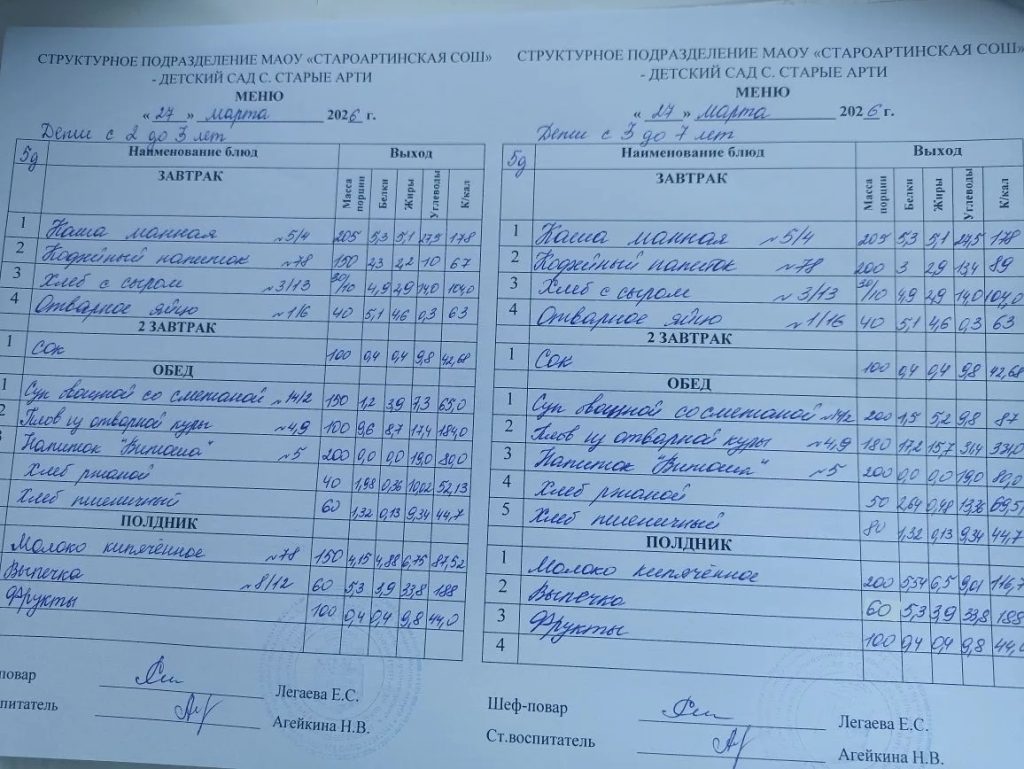 СТРУКТУРНОЕ ПОДРАЗДЕЛЕНИЕ МАОУ «СТАРОАРТИНСКАЯ СОШ»
- ДЕТСКИЙ САД С. СТАРЫЕ АРТИ
МЕНЮ
« 27 » марта 2026 г.
Дети с 2 до 3 лет
5д Наименование блюд Выход
ЗАВТРАК Масса порции Белки Жиры Углеводы К/кал
1 Каша манная №5/4 205 5,3 5,1 27,5 178
2 Кофейный напиток №78 150 2,3 2,2 10 67
3 Хлеб с сыром №3/13 30/10 4,9 2,9 14,0 104,0
4 Отварное яйцо №1/6 40 5,1 4,6 0,3 63
2 ЗАВТРАК
1 Сок 100 0,4 0,4 9,8 42,68
ОБЕД
1 Суп овощной со сметаной №14/2 150 1,2 3,9 7,3 65,0
2 Плов из отварной куры №4,9 100 9,6 8,7 17,4 184,0
3 Напиток "Витошка" №5 200 0,0 0,0 19,0 80,0
Хлеб ржаной 40 1,98 0,36 10,02 52,13
Хлеб пшеничный 60 1,32 0,13 9,34 44,7
ПОЛДНИК
Молоко кипячённое №78 150 4,15 4,88 6,75 87,52
Выпечка №8/12 60 5,3 3,9 33,8 188
Фрукты 100 0,4 0,4 9,8 44,0
повар Легаева Е.С.
питатель Агейкина Н.В.
СТРУКТУРНОЕ ПОДРАЗДЕЛЕНИЕ МАОУ «СТАРОАРТИНСКАЯ СОШ»
- ДЕТСКИЙ САД С. СТАРЫЕ АРТИ
МЕНЮ
« 27 » марта 2026 г.
Дети с 3 до 7 лет
5д Наименование блюд Выход
ЗАВТРАК Масса порции Белки Жиры Углеводы К/кал
1 Каша манная №5/4 205 5,3 5,1 27,5 178
2 Кофейный напиток №78 200 3 2,9 13,4 89
3 Хлеб с сыром №3/13 30/10 4,9 2,9 14,0 104,0
4 Отварное яйцо №1/16 40 5,1 4,6 0,3 63
2 ЗАВТРАК
1 Сок 100 0,4 0,4 9,8 42,68
ОБЕД
1 Суп овощной со сметаной №14/2 200 1,5 5,2 9,8 87
2 Плов из отварной куры №4,9 180 17,2 15,7 31,4
3 Напиток "Витошка" №5 200 0,0 0,0 19,0 80,0
4 Хлеб ржаной 50 2,64 0,48 13,36 69,51
5 Хлеб пшеничный 80 1,32 0,13 9,34 44,7
ПОЛДНИК
1 Молоко кипячённое 200 5,54 6,5 9,01
2 Выпечка 60 5,3 3,9 33,8 188
3 Фрукты 100 0,4 0,4 9,8 44,0
4
Шеф-повар Легаева Е.С.
Ст.воспитатель Агейкина Н.В.